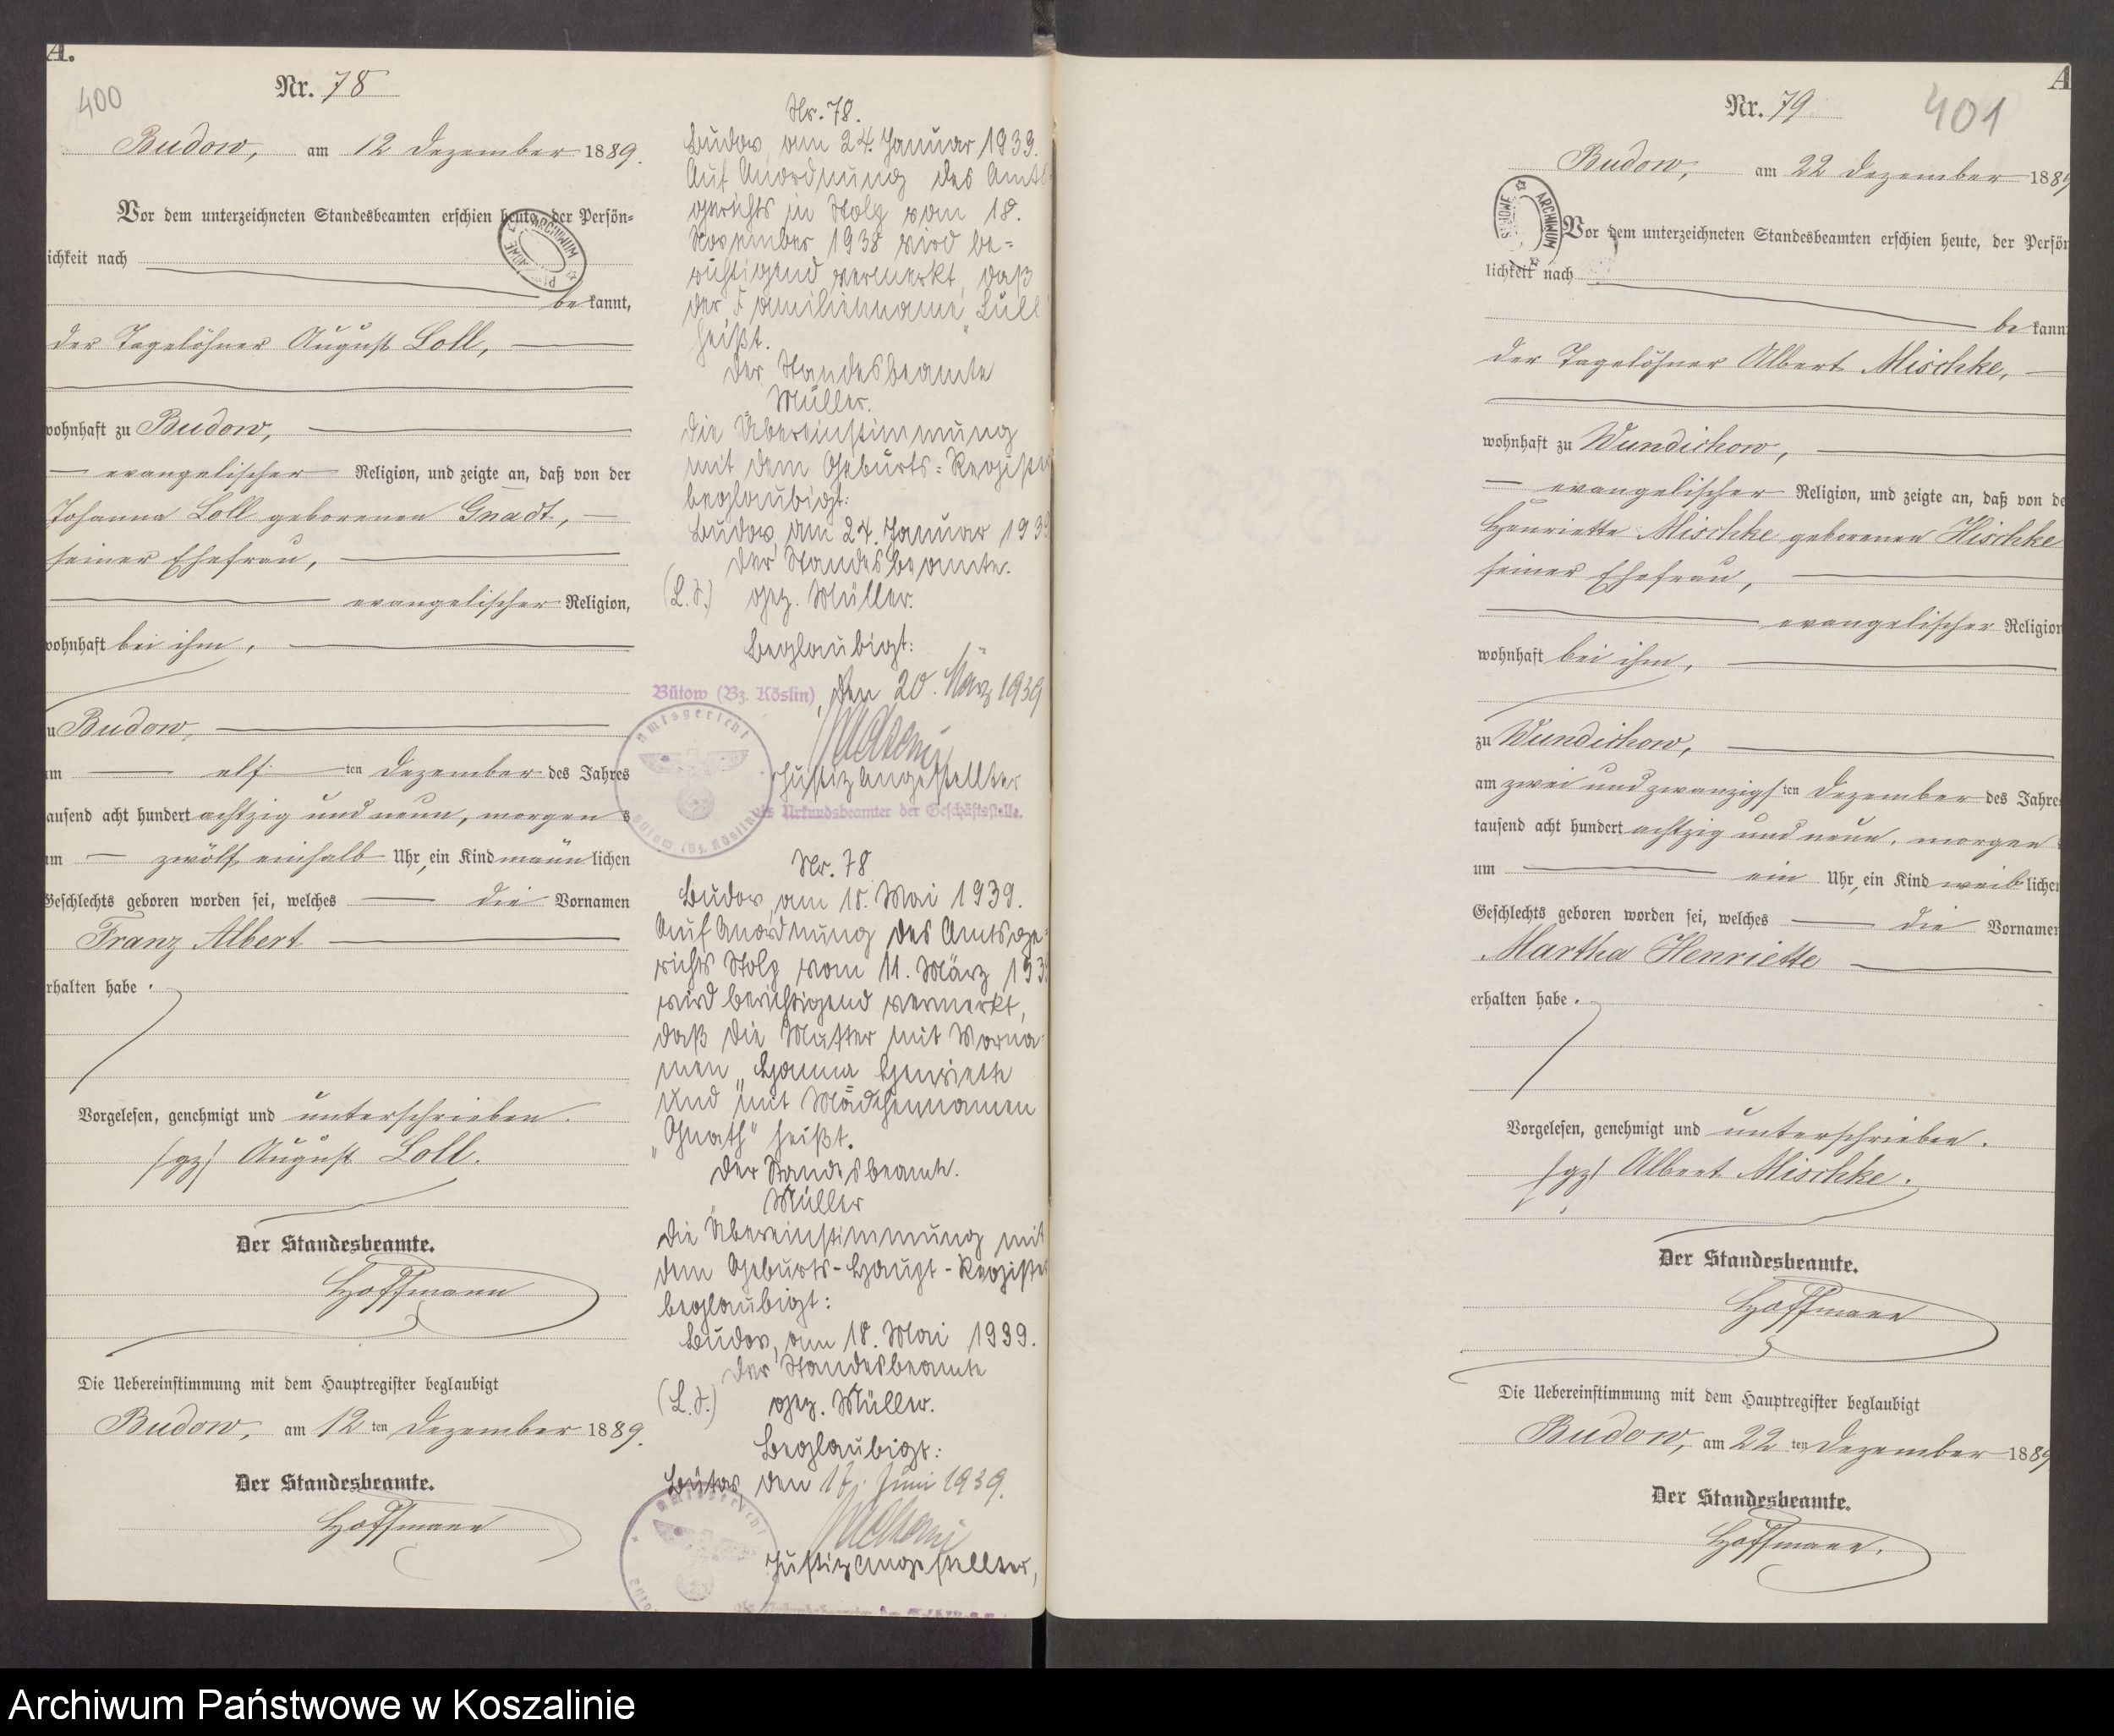 A.
400
Nr. 78
Budow, am 12 Dezember 1889.
Vor dem unterzeichneten Standesbeamten erschien heute, der Persön=
ichkeit nach
be kannt,
der Tagelöhner August Loll,
wohnhaft zu Budow,
evangelischer Religion, und zeigte an, daß von der
Johanna Loll geborenen Gnadt,
seiner Ehefrau,
evangelischer Religion,
wohnhaft bei ihm,
u Budow,
am elf ten Dezember des Jahres
tausend acht hundert achtzig und neun, morgen s
um zwölf einhalb Uhr, ein Kind männ lichen
Geschlechts geboren worden sei, welches die Vornamen
Franz Albert
erhalten habe.
Vorgelesen, genehmigt und unterschrieben.
/gz/ August Loll.
Der Standesbeamte.
Hoffmann
Die Uebereinstimmung mit dem Hauptregister beglaubigt
Budow, am 12 ten Dezember 1889.
Der Standesbeamte.
Hoffmann
Nr. 78.
Budow, am 24. Januar 1939.
Auf Anordnung des Amts
gerichts in Stolp vom 18.
November 1938 wird be=
richtigend vermerkt, daß
der Familienname „Lull“
heißt.
Der Standesbeamte
Müller.
Die Übereinstimmung
mit dem Geburts=Register
beglaubigt:
Budow, am 24. Januar 1939
Der Standesbeamte.
(L.S.) gez. Müller.
Beglaubigt:
Bütow (Bz. Köslin), den 20. März 1939
Justizangestellter
als Urkundsbeamter der Geschäftsstelle.
Amtsgericht
Bütow (Bz. Köslin)
Nr. 78
Budow, am 18. Mai 1939.
Auf Anordnung des Amtsge=
richts Stolp vom 11. März 193
wird berichtigend vermerkt,
daß die Mutter mit Vorna
men „Hanna Henriette
und mit Mädchennamen
„Gnath“ heißt.
Der Standesbeamte.
Müller
Die Übereinstimmung mit
dem Geburts-Haupt-Register
beglaubigt:
Budow, am 18. Mai 1939.
Der Standesbeamte
(L.S.) gez. Müller.
Beglaubigt:
Bütow, den Juni 1939.
Amtsgericht
Justizangestellter,
A
401
Nr. 79.
Budow, am 22 Dezember 1889
ARCHIWUM
Vor dem unterzeichneten Standesbeamten erschien heute, der Persön
lichkeit nach
be kann
der Tagelöhner Albert Mischke,
wohnhaft zu Wundichow,
evangelischer Religion, und zeigte an, daß von de
Henriette Mischke geborenen Hischke
seiner Ehefrau,
evangelischer Religion
wohnhaft bei ihm,
zu Wundichow,
am zwei und zwanzigs ten Dezember des Jahres
tausend acht hundert achtzig und neun, morgen
um ein Uhr, ein Kind weib lichen
Geschlechts geboren worden sei, welches die Vornamen
Martha Henriette
erhalten habe.
Vorgelesen, genehmigt und unterschrieben.
/gz/ Albert Mischke.
Der Standesbeamte.
Hoffmann
Die Uebereinstimmung mit dem Hauptregister beglaubigt
Budow, am 22 ten Dezember 1889
Der Standesbeamte.
Hoffmann.
Archiwum Państwowe w Koszalinie